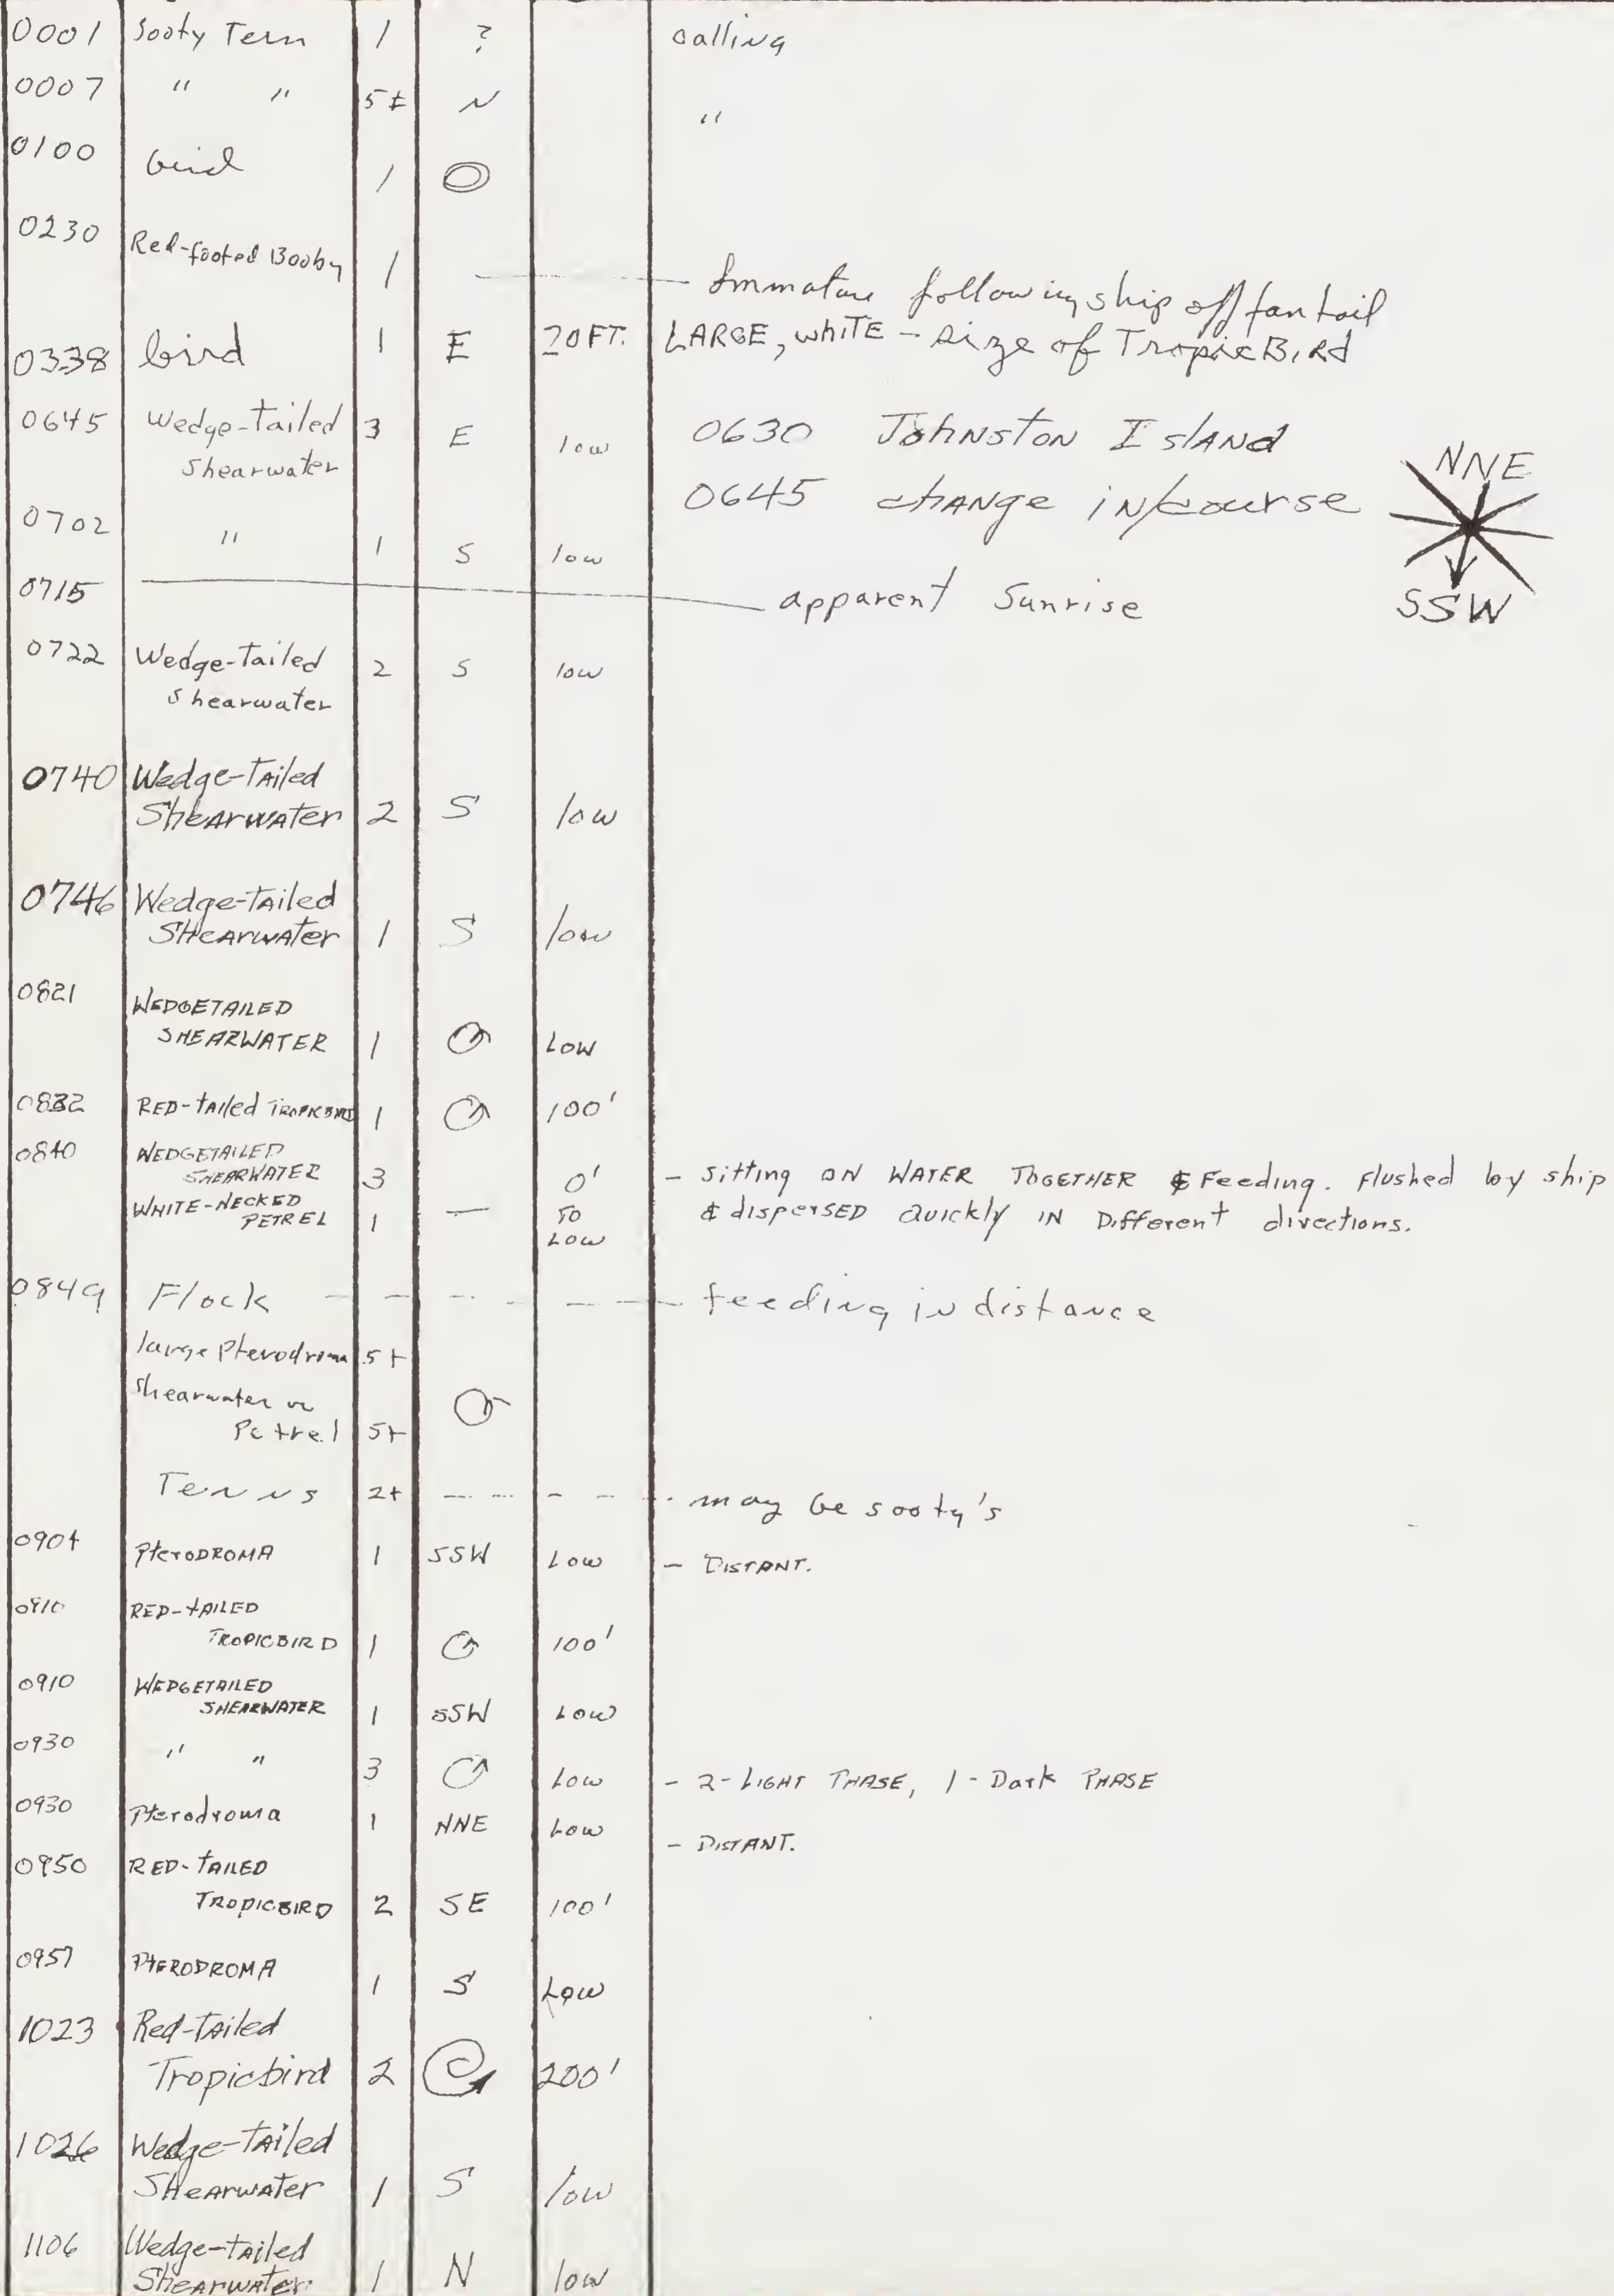 0001 Sooty Tern 1 ? calling
0007 " " 5± N "
0100 bird 1
0230 Red-footed Booby 1 — Immature following ship off fantail
0338 bird 1 E 20FT. LARGE, white - size of TropicBird
0645 Wedge-Tailed 3 E low 0630 Johnston Island
shearwater
0645 change in/course
NNE
0702 " 1 S low
0715 — apparent Sunrise
SSW
0722 Wedge-Tailed 2 S low
shearwater
0740 Wedge-Tailed
Shearwater 2 S low
0746 Wedge-Tailed
Shearwater 1 S low
0821 WEDGETAILED
SHEARWATER 1 LOW
0832 RED-tailed TROPICBIRD 1 100'
0840 WEDGETAILED
SHEARWATER 3 0' - Sitting ON WATER TOGETHER & Feeding. Flushed by ship
WHITE-NECKED TO & dispersed quickly IN Different directions.
PETREL 1 — LOW
0849 Flock - - - - - feeding in distance
large Pterodroma 5+
Shearwater or
Petrel 5+
Terns 2+ - - - - may be sooty's
0904 PterODROMA 1 SSW LOW - DISTANT.
0910 RED-tAILED
TROPICBIRD 1 100'
0910 WEDGETAILED
SHEARWATER 1 SSW LOW
0930 " " 3 LOW - 2-LIGHT PHASE, 1-Dark PHASE
0930 Pterodroma 1 NNE LOW - DISTANT.
0950 RED-tAILED
TROPICBIRD 2 SE 100'
0957 PtERODROMA 1 S Low
1023 Red-Tailed
Tropicbird 2 200'
1026 Wedge-Tailed
Shearwater 1 S low
1106 Wedge-tailed
Shearwater 1 N low